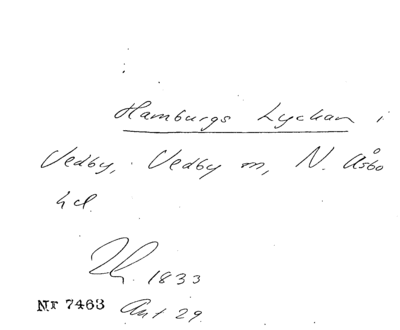 Hamburgs Lyckan i
Vedby, Vedby sn, N. Åsbo
hd.
1833
Nr 7463 Ant 29.